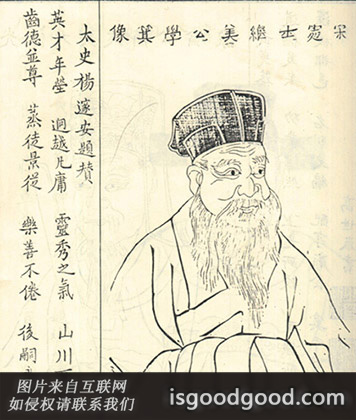 宋處士繼美公學箕像
太史楊邃安題贊
英才卓犖 迥越凡庸 靈秀之氣 山川
齒德並尊 蒸徒景從 樂善不倦 後嗣
图片来自互联网
如侵权请联系我们
isgoodgood.com